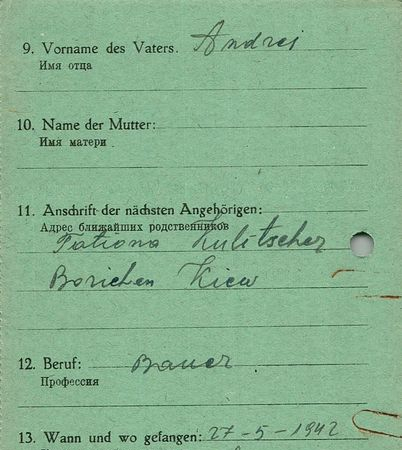 9. Vorname des Vaters. Andrei
Имя отца
10. Name der Mutter:
Имя матери
11. Anschrift der nächsten Angehörigen:
Адрес ближайших родственников
Tatiana Kulitscher
Borichen Kiew
12. Beruf: Bauer
Профессия
13. Wann und wo gefangen: 27-5-1942